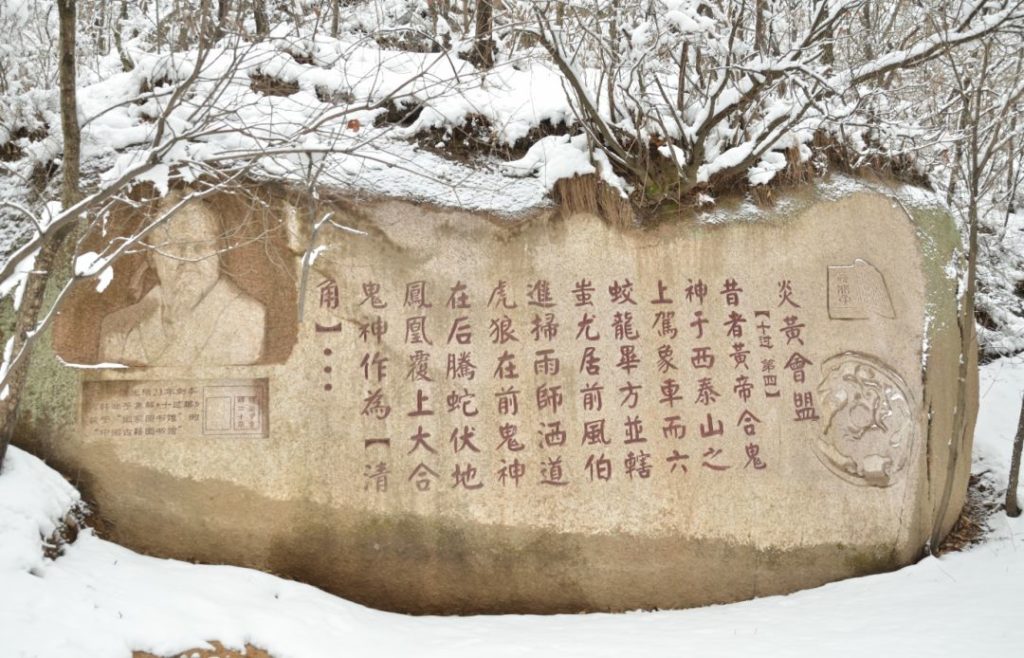 炎黃會盟
【十过 第四】
昔者黃帝合鬼
神于西泰山之
上駕象車而六
蛟龍畢方並轄
蚩尤居前風伯
進掃雨師洒道
虎狼在前鬼神
在后騰蛇伏地
鳳凰覆上大合
鬼神作為【清
角】⋯